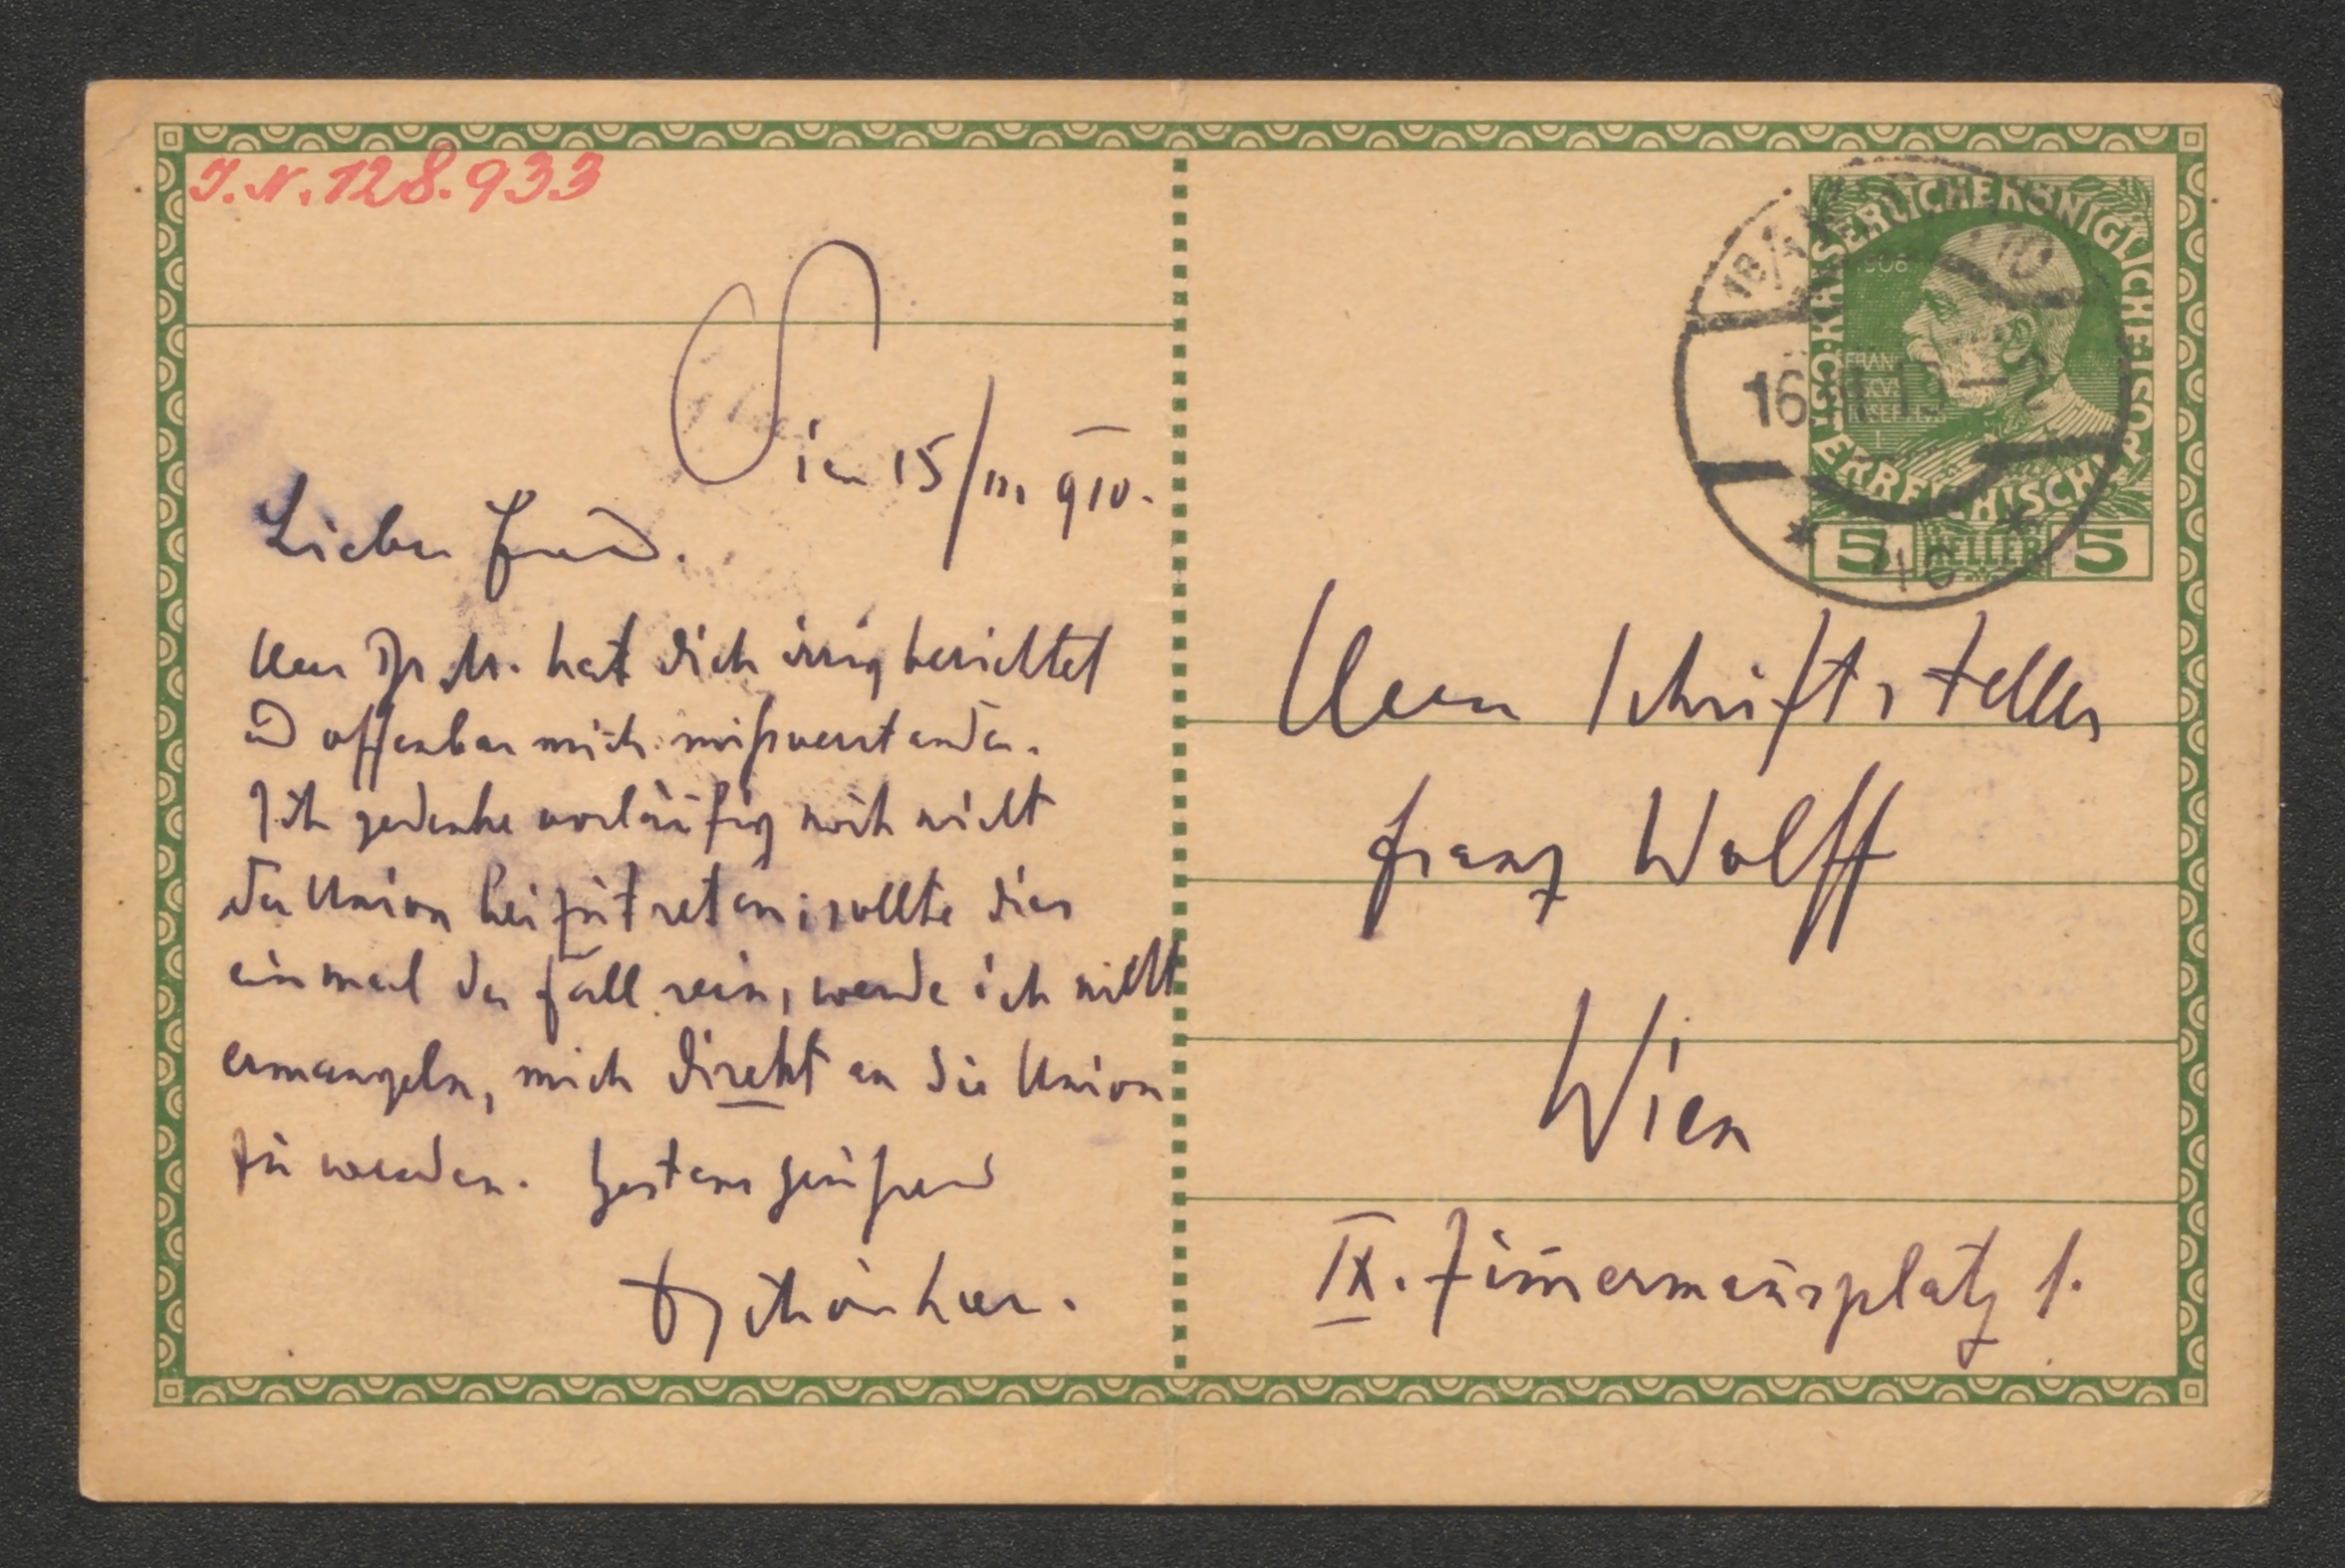 J.N. 128.933
Wien 15/III 910.
Lieber Freund.
Herr Dr M. hat dich irrig berichtet
u offenbar mich mißverstanden.
Ich gedenke vorläufig noch nicht
der Union beizutreten; sollte dies
einmal der Fall sein, werde ich nicht
ermangeln, mich direkt an die Union
zu wenden. Bestens grüßend
Schönherr.
KAISERLICHE KÖNIGLICHE
ÖSTERREICHISCHE POST
1908
FRANCISCVS IOSEPHVS I
5 HELLER 5
18/1 WIEN 110
16. III. 10 – 2
* 4c *
Herrn Schriftsteller
Franz Wolff
Wien
IX. Zim̄erman̄splatz 1.